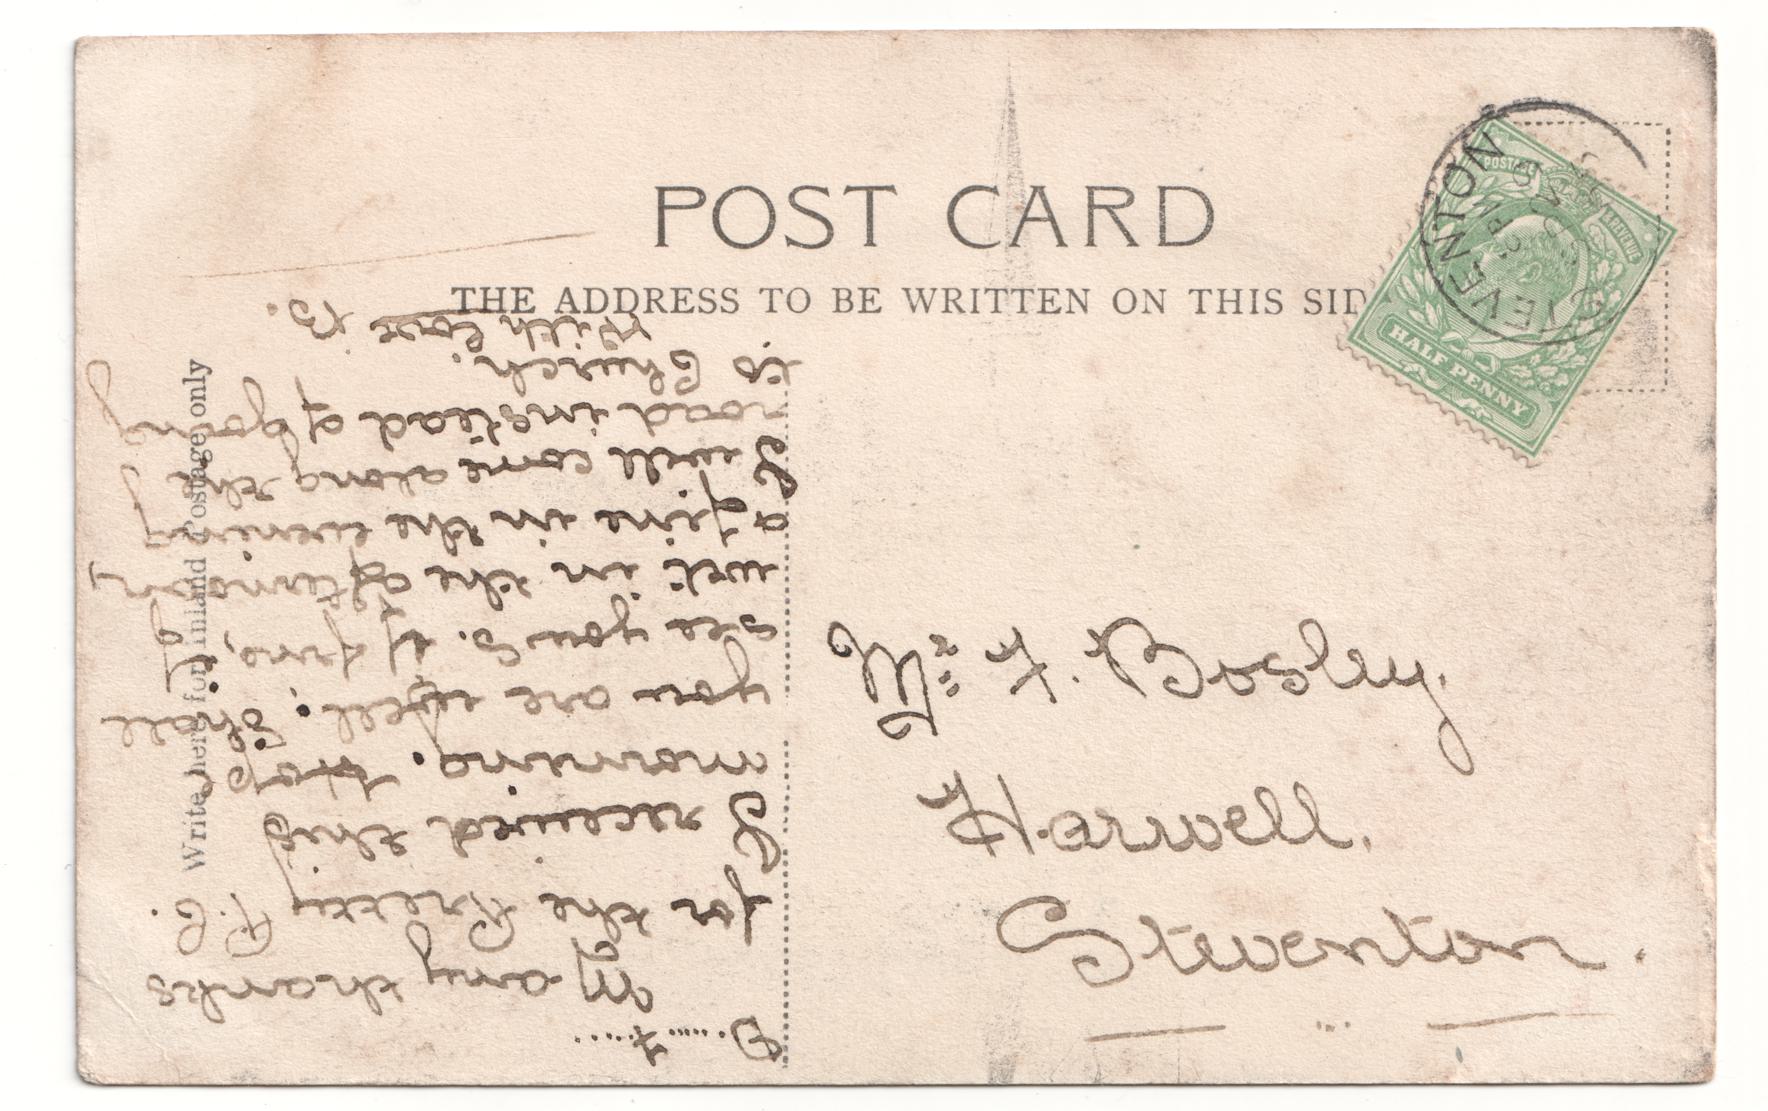 POST CARD
THE ADDRESS TO BE WRITTEN ON THIS SID
Write here for Inland Postage only
POSTAGE
REVENUE
HALF PENNY
STEVENTON
Mr. F. Bosley.
Harwell.
Steventon.
D.....F.....
Many thanks
for the Pretty P.C.
I received this
morning. Hop
you are well. Shall
see you S. if fine, if
wet in the afternoon
a fine in the evening
I will come along the
road instead of going
to Church.
With love
B.